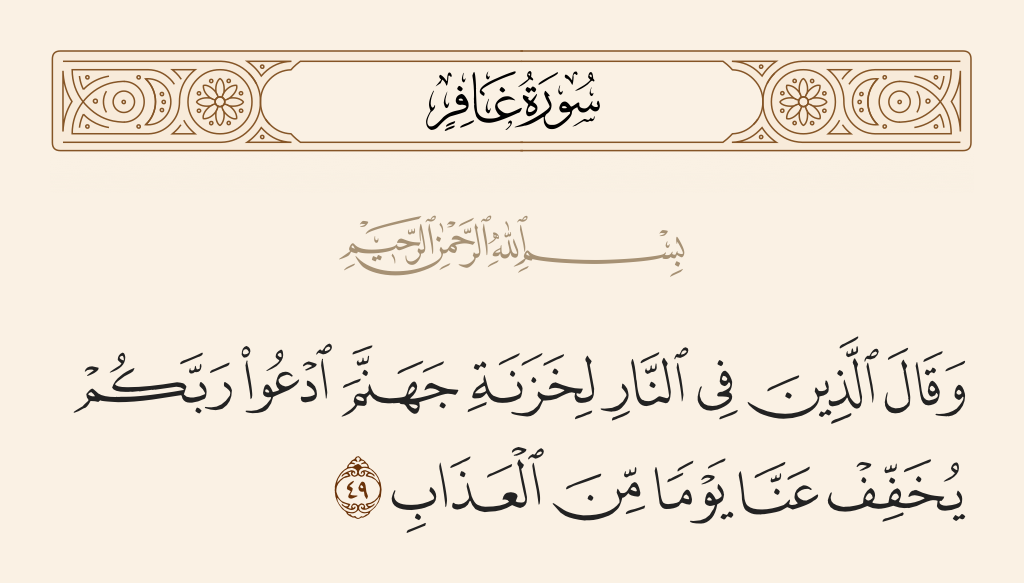 سُورَةُ غَافِرٍ
بِسْمِ ٱللَّهِ ٱلرَّحْمَٰنِ ٱلرَّحِيمِ
وَقَالَ ٱلَّذِينَ فِى ٱلنَّارِ لِخَزَنَةِ جَهَنَّمَ ٱدْعُوا۟ رَبَّكُمْ
يُخَفِّفْ عَنَّا يَوْمًا مِّنَ ٱلْعَذَابِ ٤٩